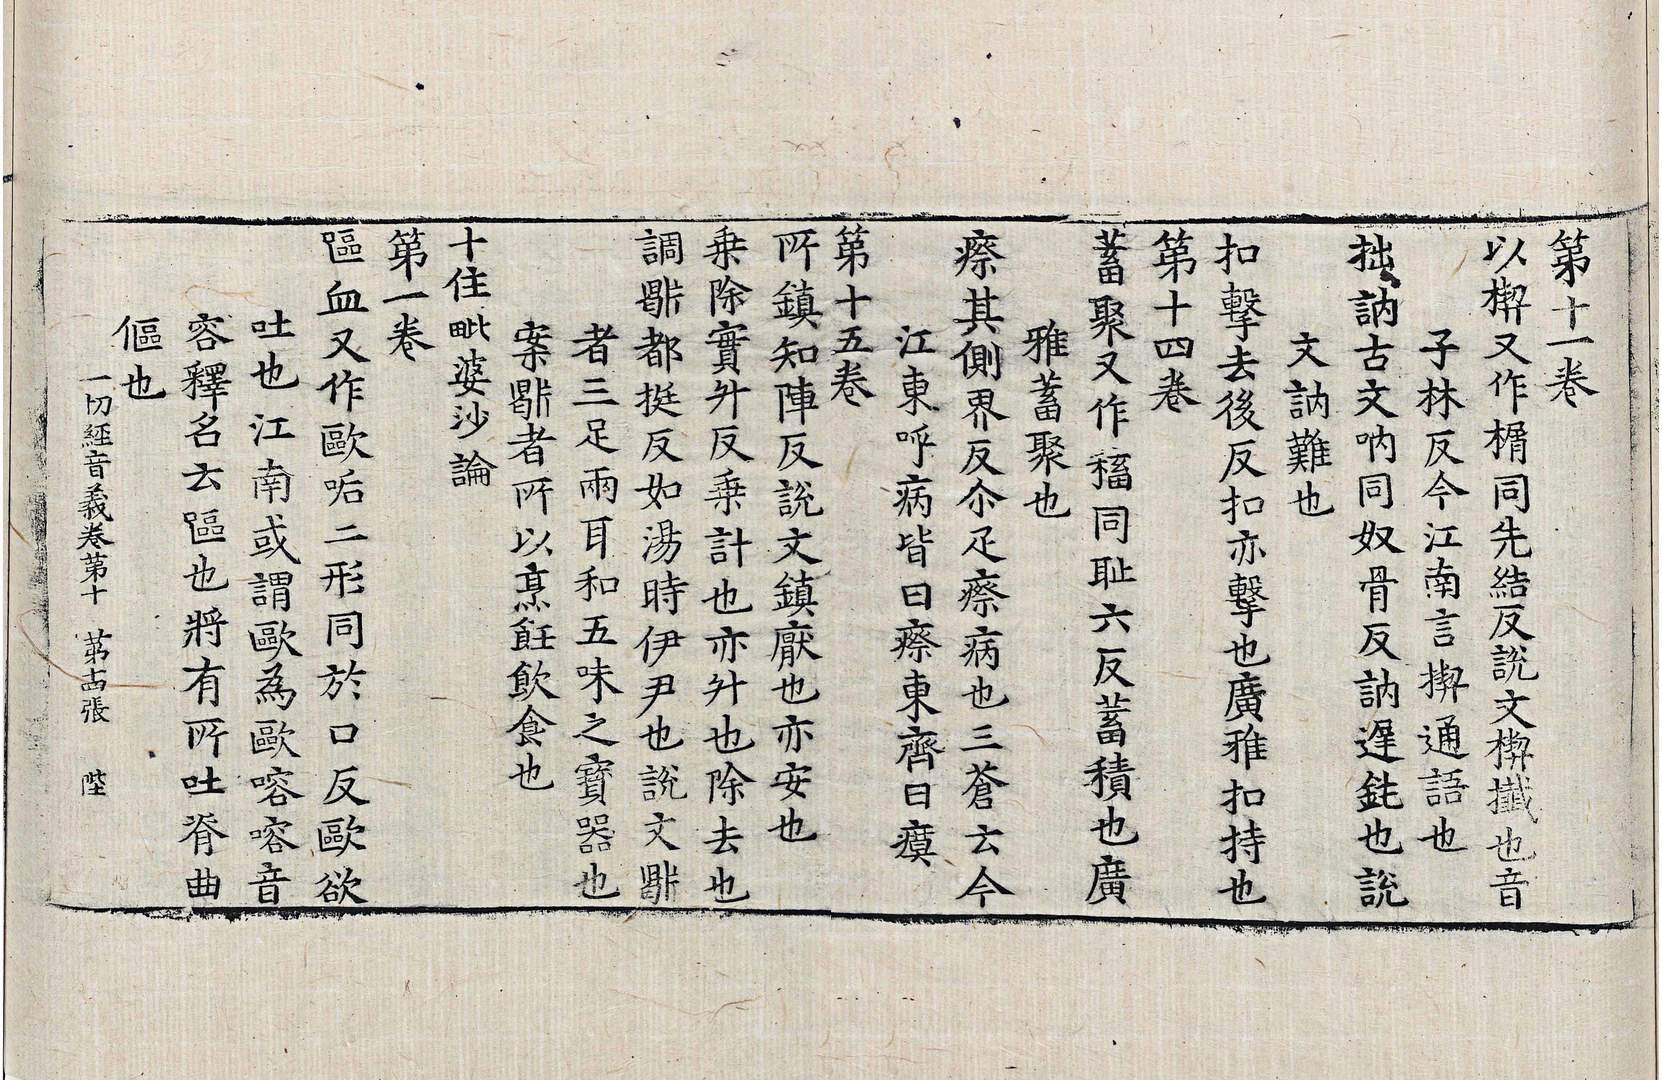 第十一卷
以楔又作楈同先結反說文楔攕也音
子林反今江南言楔通語也
拙訥古文吶同奴骨反訥遟鈍也說
文訥難也
扣擊去後反扣亦擊也廣雅扣持也
第十四卷
蓄聚又作稸同耻六反蓄積也廣
雅蓄聚也
瘵其側界反尒疋瘵病也三蒼云今
江東呼病皆曰瘵東齊曰瘼
第十五卷
所鎮知陣反說文鎮厭也亦安也
乗除實升反乗計也亦升也除去也
調鼎都挺反如湯時伊尹也說文鼎
者三足兩耳和五味之寶器也
案鼎者所以烹飪飲食也
十住毗婆沙論
第一卷
嘔血又作歐㖃二形同於口反歐欲
吐也江南或謂歐為歐喀喀音
客釋名云嘔也將有所吐脊曲
傴也
一切經音義卷第十 第十四張 陛